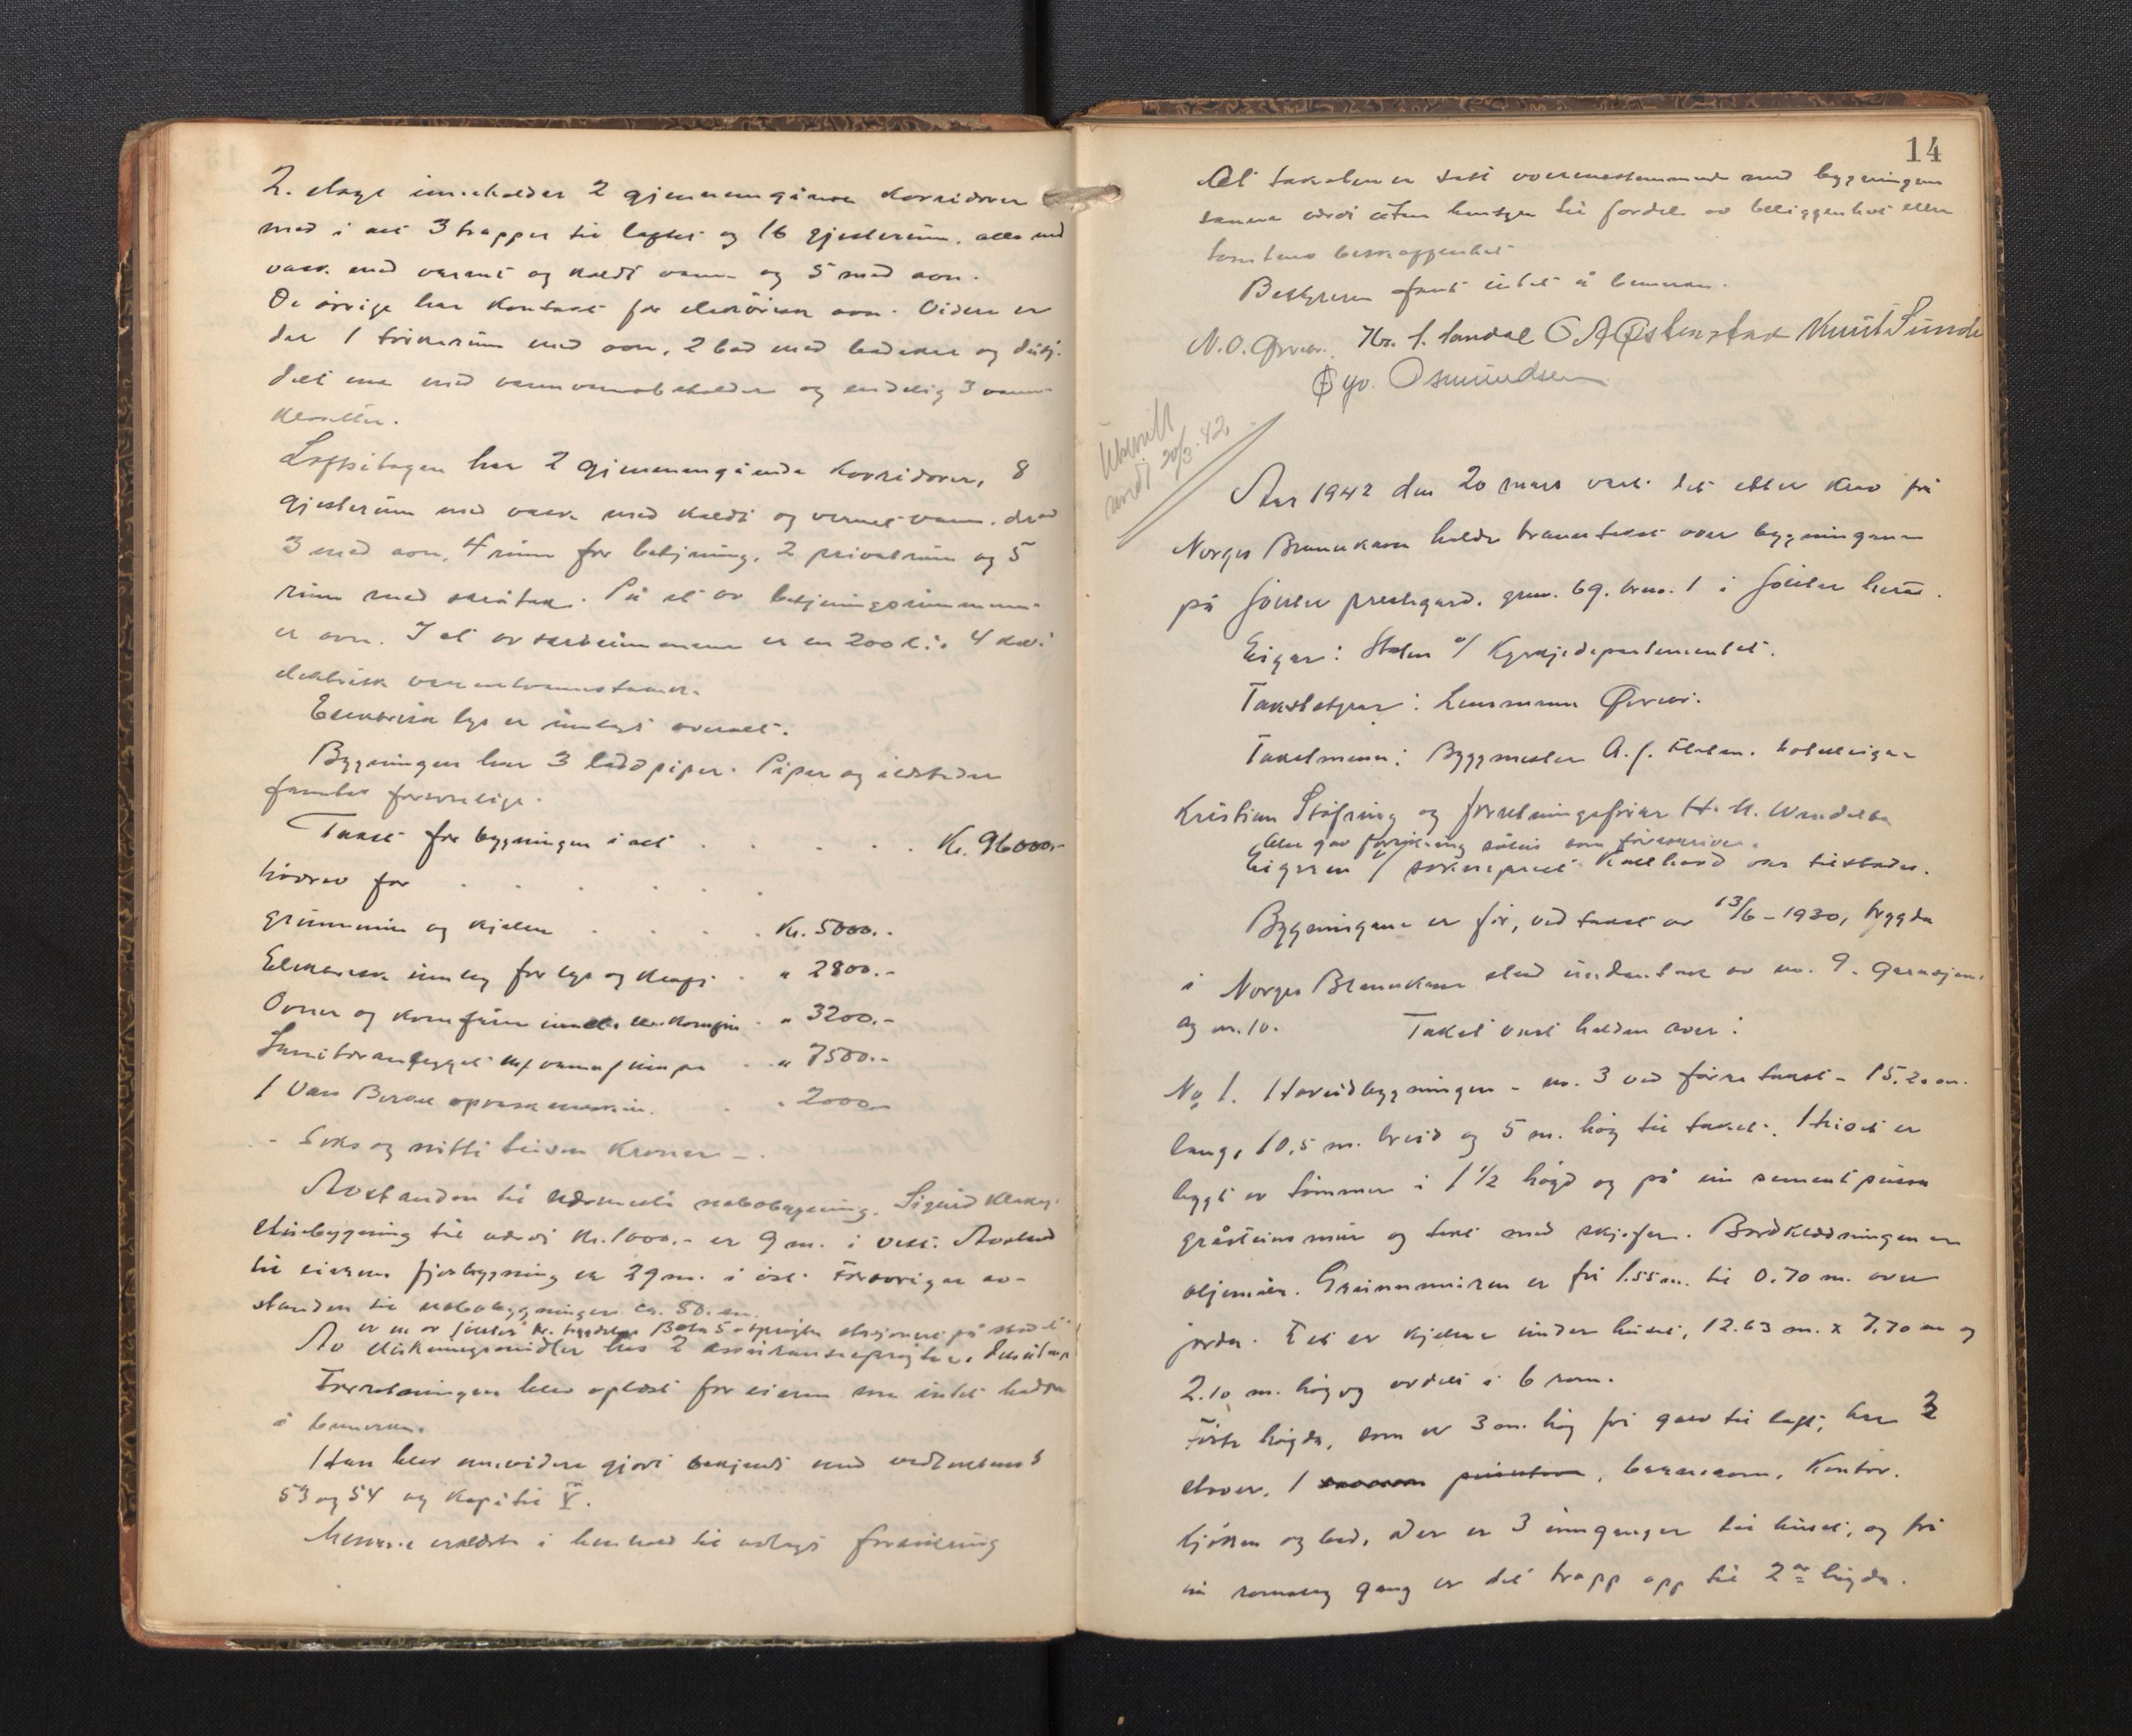 2. etage inneholder 2 gjennemgående korridorer
med i alt 3 trapper til loftet og 16 gjesterum, alle med
vask med varmt og koldt vann og 5 med ovn.
De övrige har kontakt for elektrisk ovn. Videre er
det 1 med ovn, 2 bad med badekar og dusj,
det ene med varmvannsbeholder og endelig 3 vann-
klosetter.
Loftsetagen har 2 gjennemgående korridorer, 8
gjesterum med vask med koldt og varmt vann, derav
3 med ovn, 4 rum for betjening, 2 privatrum og 5
rum med skråtak. På et av betjeningsrummene
er ovn. I et av rummene er en 200 l. 4 kw.
elektrisk varmtvannstank.
Elektrisk lys er innlagt overalt.
Bygningen har 3 piper. Piper og ildsteder
fantes forsvarlige.
Takst for bygningen i alt . . . . . Kr. 96000.-
hvorav for . . . . . .
grunnmur og kjeller . . . . Kr. 5000.-
Elektrisk innlegg for lys og kraft . „ 2800.-
Ovner og komfyrer . „ 3200.-
Sanitæranlegget m/ vannpumpe . „ 7500.-
1 opvaskmaskin . . „ 2000.-
- Seks og nitti tusen Kroner -.
Avstanden til nærmeste nabobygning, Sigurd
bygning til verdi Kr. 1000.- er 9 m. i vest. Avstand
til eierens fjösbygning er 29 m. i öst. Forövrig er av-
standen til nabobygninger ca. 50 m.
er på
Av slukningsmidler has 2
Forretningen blev oplest for eieren som intet hadde
å bemerke.
Han blev gjort bekjendt med vedtektenes §
53 og 54 og Kapitel V.
Mennene erklærte i henhold til avlagt forsikring
14
At taksten er satt overensstemmende med bygningens
sanne verdi uten hensyn til fordel av beliggenhet eller
tomtens beskaffenhet
Bestyreren fant intet å bemerke.
N. O. Kr. J. Sandal O A Østenstad Knut Sunde
Øyv. Osmundsen
Utskrift
sendt 20/3. 42
Aar 1942 den 20 mars vart det etter krav frå
Norges Brannkasse halde branntakst over bygningane
på Jölster prestegard, gnr. 69, bnr. 1 i Jölster herad.
Eigar: Staten v/ Kyrkjedepartementet.
Takstbestyrar: Lensmann
Takstmenn: Byggmester A. J. hotelleigar
Kristian Stöfring og forretningsförar H. M.
som föreskrive.
Eigaren v/ sokneprest var tilstades.
Bygningane er för, ved takst av 13/6-1930, trygda
i Norges Brannkasse med undantak av no. 9.
og nr. 10. Takst vart halden over:
No 1. Hovudbygningen - no. 3 ved förre takst - 15,20 m.
lang, 10,5 m. breid og 5 m. høg til taket. Huset er
bygt av tömmer i 1 1/2 högd og på ein sementpussa
gråsteinsmur og tekt med skjifer. Bordklædningen er
oljemåla. Grunnmuren er frå 1.55 m. til 0.70 m. over
jorda. Det er kjellar under huset, 12.63 m. x 7,70 m og
2.10 m. høg og avdelt i 6 rom.
Förste högda, som er 3 m. høg frå golv til loft, har 3
stover, 1 , barnerom, kontor,
kjöken og bad. Der er 3 innganger til huset, og frå
ein romsleg gang er det trapp opp til 2ar högda.